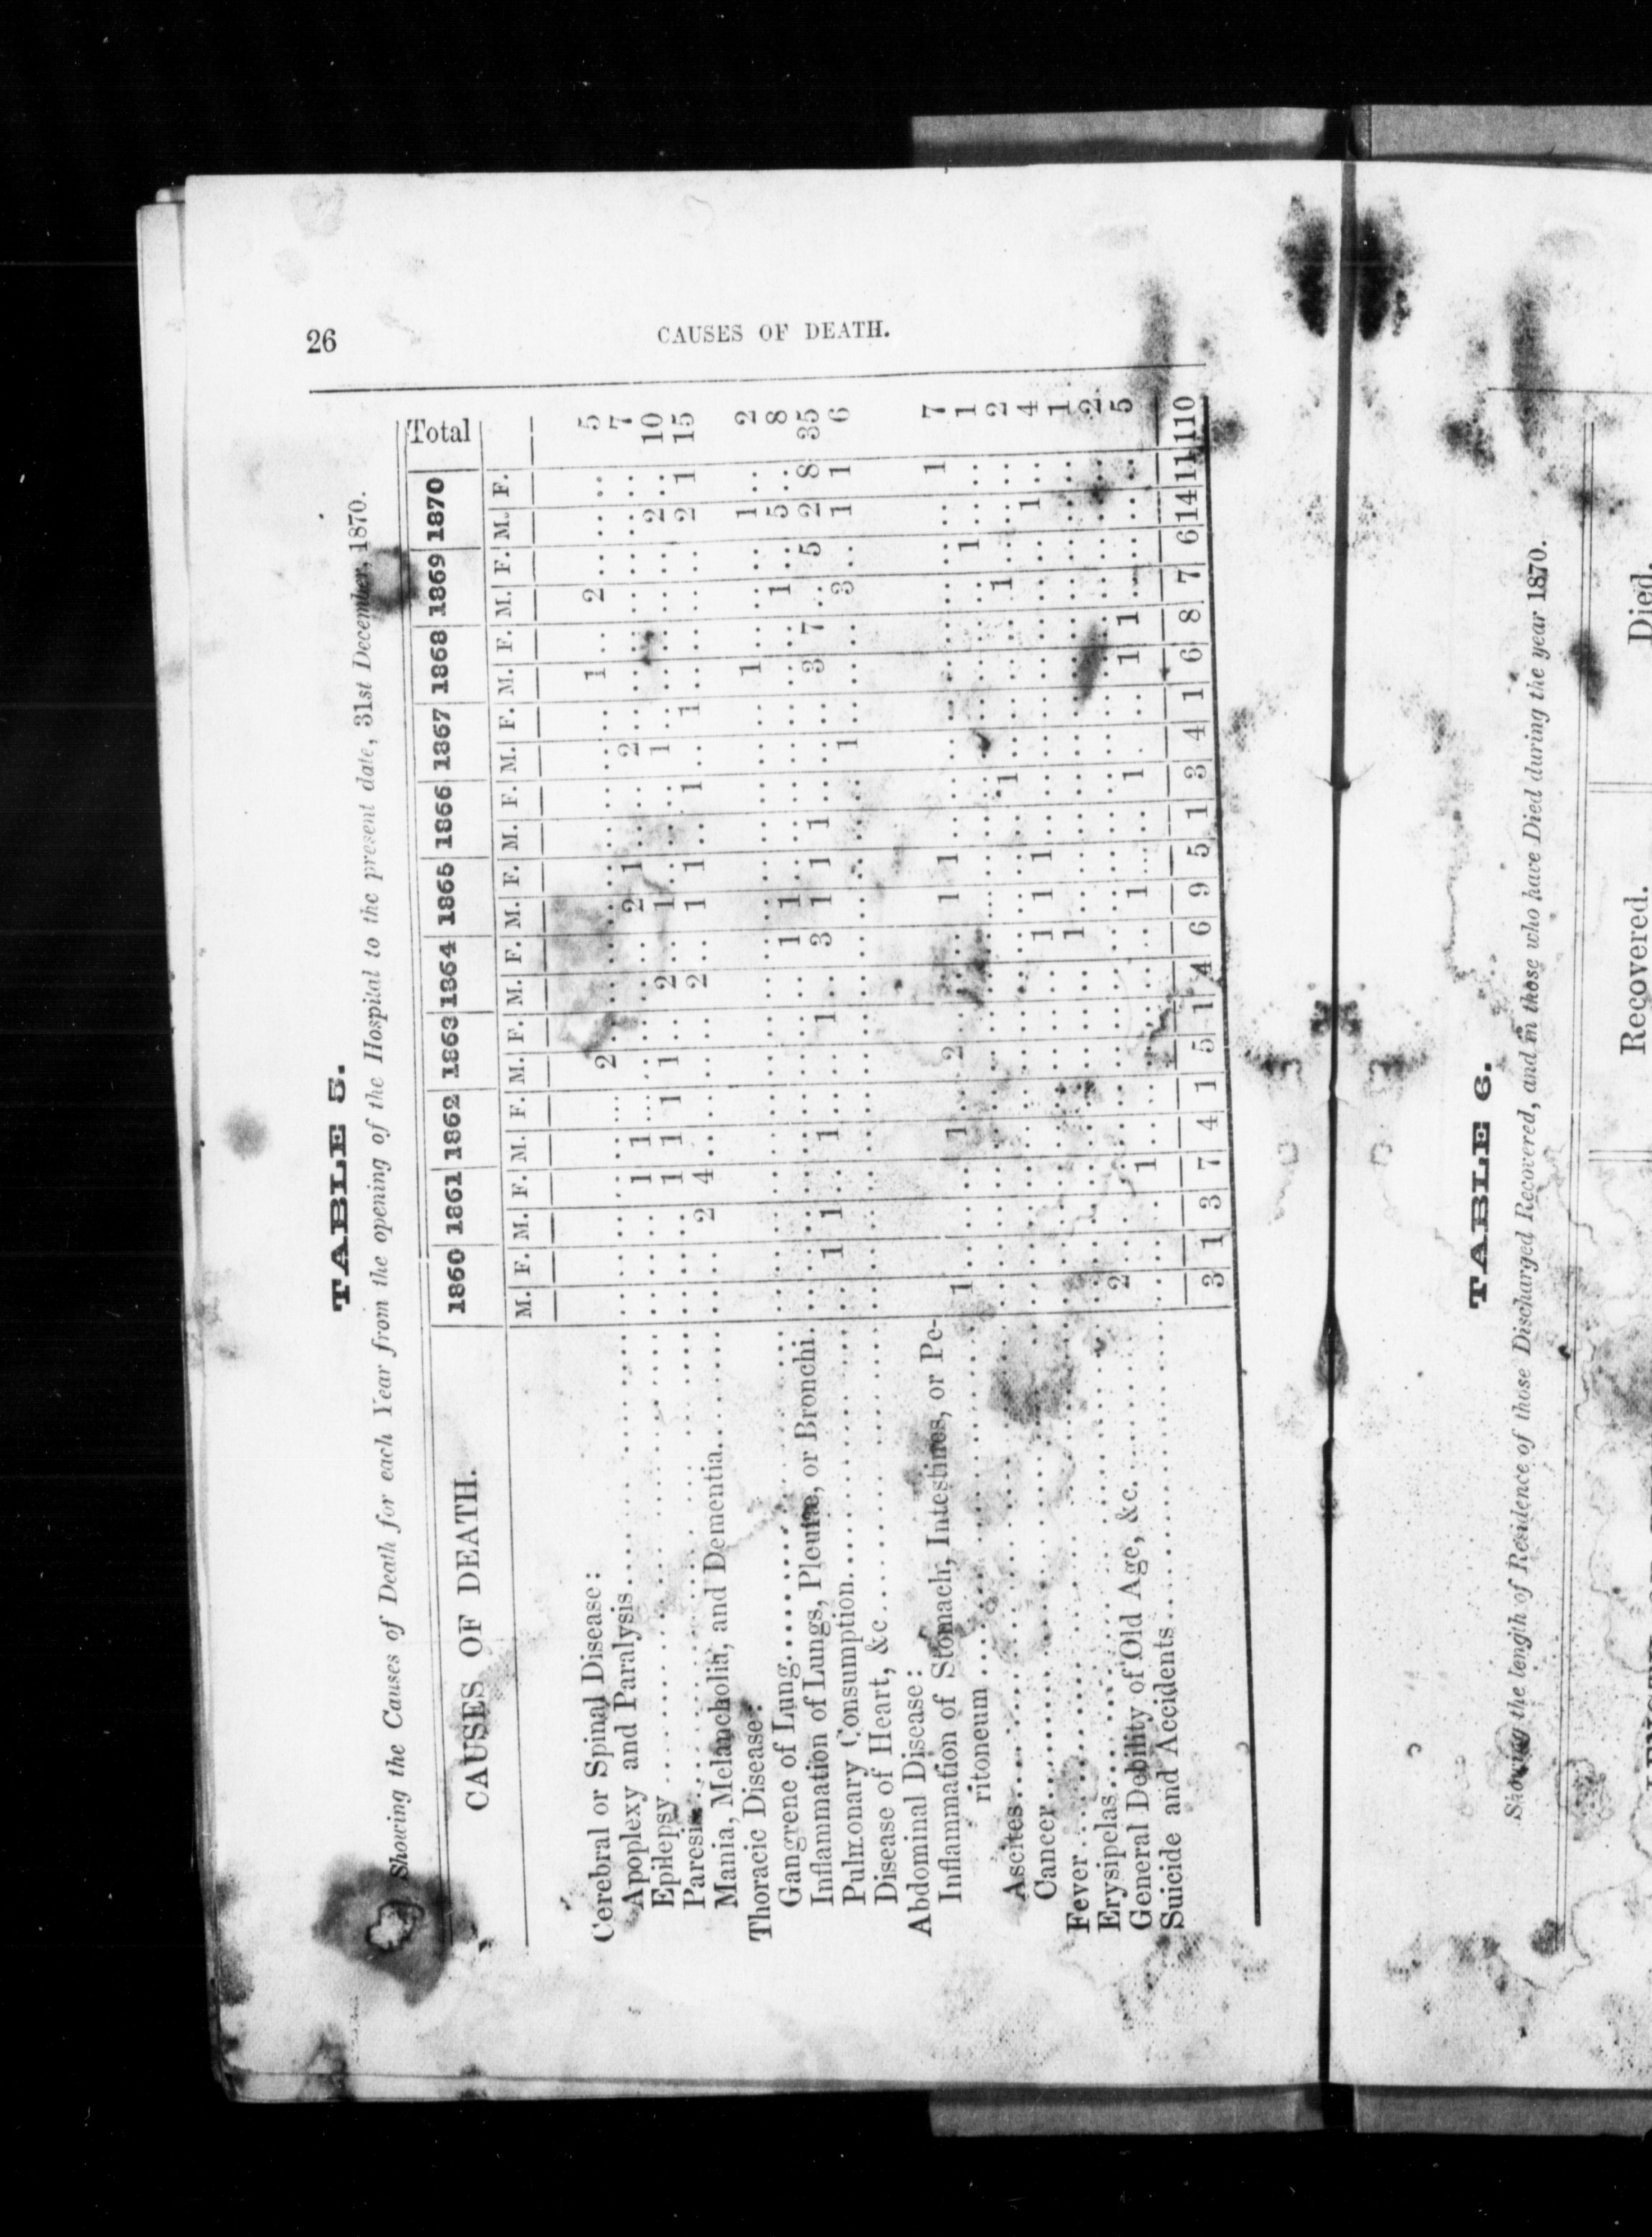 26
CAUSES OF DEATH.
TABLE 5.
Showing the Causes of Death for each Year from the opening of the Hospital to the present date, 31st December, 1870.
CAUSES OF DEATH. 1860 1861 1862 1863 1864 1865 1866 1867 1868 1869 1870 Total
M. F. M. F. M. F. M. F. M. F. M. F. M. F. M. F. M. F. M. F. M. F.
Cerebral or Spinal Disease:
Apoplexy and Paralysis .. .. .. .. .. .. 2 .. .. .. .. .. .. .. .. .. 1 .. 2 .. .. .. 5
Epilepsy .. .. .. 1 1 .. .. .. .. .. 2 1 .. .. 2 .. .. .. .. .. .. .. 7
Paresis .. .. .. 1 1 1 1 .. 2 .. 1 .. .. .. 1 .. .. .. .. .. 2 .. 10
Mania, Melancholia, and Dementia .. .. 2 4 .. .. .. .. 2 .. 1 1 .. 1 .. 1 .. .. .. .. 2 1 15
Thoracic Disease:
Gangrene of Lung .. .. .. .. .. .. .. .. .. .. .. .. .. .. .. .. 1 .. .. .. 1 .. 2
Inflammation of Lungs, Pleuræ, or Bronchi. .. .. .. .. .. .. .. .. .. 1 1 .. .. .. .. .. .. .. 1 .. 5 .. 8
Pulmonary Consumption .. 1 1 .. 1 .. .. 1 .. 3 1 1 1 .. .. .. 3 7 .. 5 2 8 35
Disease of Heart, &c .. .. .. .. .. .. .. .. .. .. .. .. .. .. 1 .. .. .. 3 .. 1 1 6
Abdominal Disease:
Inflammation of Stomach, Intestines, or Pe-
ritoneum 1 .. .. .. 1 .. 2 .. .. .. 1 1 .. .. .. .. .. .. .. .. .. 1 7
Ascites .. .. .. .. .. .. .. .. .. .. .. .. .. .. .. .. .. .. .. 1 .. .. 1
Cancer .. .. .. .. .. .. .. .. .. .. .. .. .. 1 .. .. .. .. 1 .. .. .. 2
Fever .. .. .. .. .. .. .. .. .. 1 1 1 .. .. .. .. .. .. .. .. 1 .. 4
Erysipelas .. .. .. .. .. .. .. .. .. 1 .. .. .. .. .. .. .. .. .. .. .. .. 1
General Debility of Old Age, &c. 2 .. .. .. .. .. .. .. .. .. .. .. .. .. .. .. .. .. .. .. .. .. 2
Suicide and Accidents .. .. .. 1 .. .. .. .. .. .. 1 .. .. 1 .. .. 1 1 .. .. .. .. 5
3 1 3 7 4 1 5 1 4 6 9 5 1 3 4 1 6 8 7 6 14 11 110
TABLE 6.
Showing the length of Residence of those Discharged Recovered, and in those who have Died during the year 1870.
Recovered. Died.